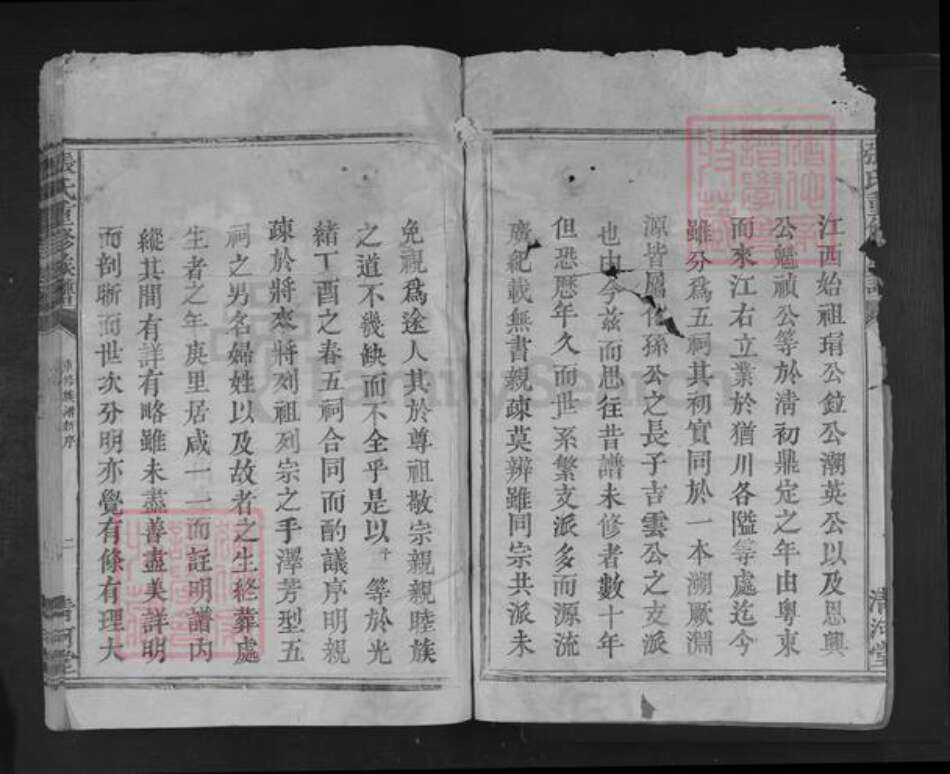 江西始祖琄公竝公潮英公以及思興
公魁禎公等於清初鼎定之年由粵東
而來江右立業於猶川各隘等處迄今
雖分爲五祠其初實同於一本溯厥淵
源皆屬化孫公之長子吉雲公之支派
也由今茲而思往昔譜未修者數十年
但恐歷年久而世系繁支派多而源流
廣紀載無書親疎莫辨雖同宗共派未
免視爲途人其於尊祖敬宗親親睦族
之道不幾缺而不全乎是以 等於光
緒丁酉之春五祠合同而酌議序明親
疎於將來將列祖列宗之手澤芳型五
祠之男名婦姓以及故者之生終葬處
生者之年庚里居咸一一而註明譜內
縱其間有詳有略雖未盡善盡美詳明
而剖晰而世次分明亦覺有條有理大
張氏重修族譜
重修族譜新序
二
清河堂
清河堂
FamilySearch